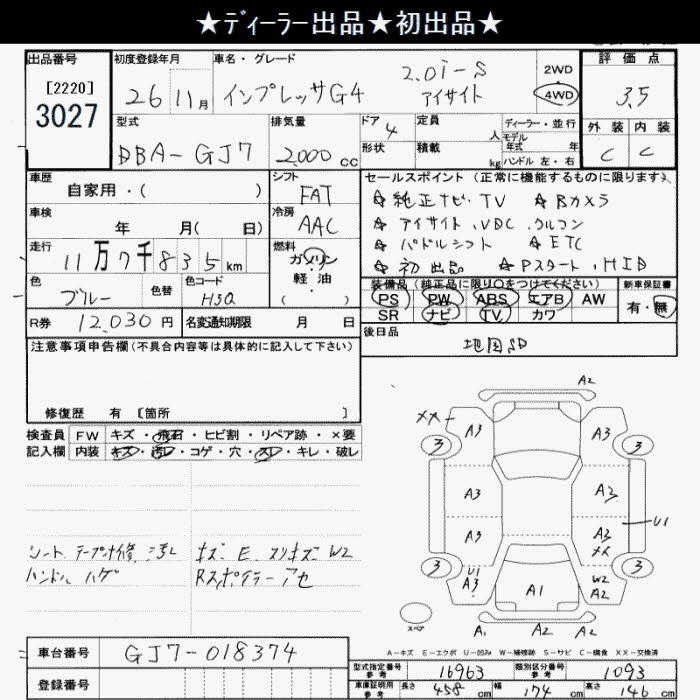 ★ディーラー出品★初出品★
出品番号 初度登録年月 車名・グレード 評価点
[2220]
3027
26 11月 インプレッサG4 2.0i-S アイサイト 2WD 4WD 3.5
型式 排気量 ドア 定員 人 ディーラー・並行 外装 内装
DBA-GJ7 2000cc 4 形状 積載 kg モデル年式 年 ハンドル 左・右 C C
車歴 シフト セールスポイント(正常に機能するものに限ります)
自家用・( ) FAT ☆純正ナビ・TV ☆Bカメラ
車検 冷房 ☆アイサイト、VDC、クルコン
年 月( 日) AAC ☆パドルシフト ☆ETC
走行 燃料 ☆初出品 ☆Pスタート、HID
11万7千835km ガソリン 軽油 ( )
色 色替 色コード 装備品(純正品に限り○をつけてください) 新車保証書
ブルー H3Q PS PW ABS エアB AW 有・無
SR ナビ TV カワ
R券 12,030円 名変通知期限 月 日 後日品
地図SD
注意事項申告欄(不具合内容等は具体的に記入して下さい)
修復歴 有 [箇所 ]
検査員 FW キズ・飛石・ヒビ割・リペア跡・×要
記入欄 内装 キズ・汚レ・コゲ・穴・スレ・キレ・破レ
シート、テープ補修、汚レ キズ E スリキズ W2
ハンドル ハゲ Rスポイラーアセ
A2
XX A3 A3
3 3
A3 A2
A3 A3 XX U1
U1 A3 W2 A2
3 3
A1
スペア A1 A2 A2
A-キズ E-エクボ U-凹み W-補修跡 S-サビ C-腐食 XX-交換済
車台番号 GJ7-018374
型式指定番号 参考 16963 類別区分番号 参考 1093
登録番号 車庫証明用 参考 長さ 458cm 幅 174cm 高さ 146cm